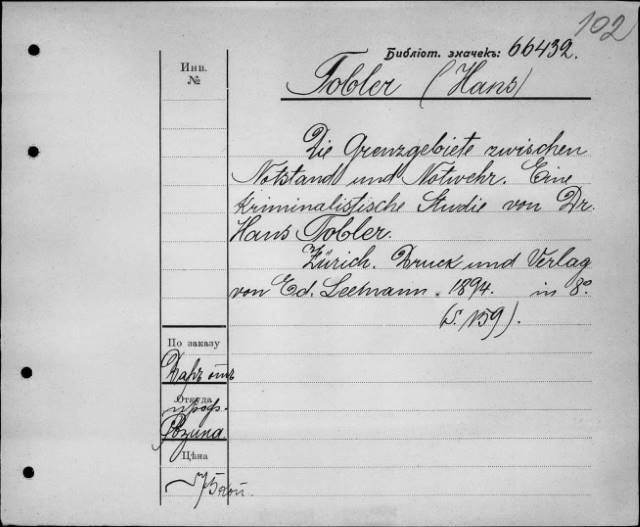 102
Библіот. значекъ: 66432.
Инв.
№
Tobler (Hans)
Die Grenzgebiete zwischen
Notstand und Notwehr. Eine
kriminalistische Studie von Dr.
Hans Tobler.
Zürich. Druck und Verlag
von Ed. Leemann. 1894. in 8°.
(S. 159).
По заказу
Даръ отъ
Откуда
проф.
Розина
Цѣна
75 коп.